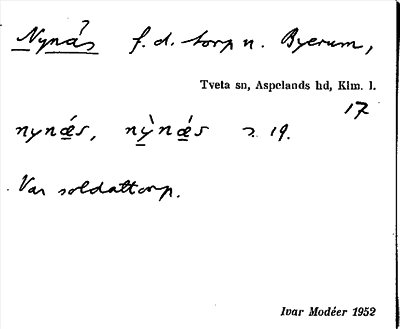 Nynäs f.d. torp u. Byerum,
Tveta sn, Aspelands hd, Klm. l.
17
nynǽs, nỳnǽs 19.
Var soldattorp.
Ivar Modéer 1952